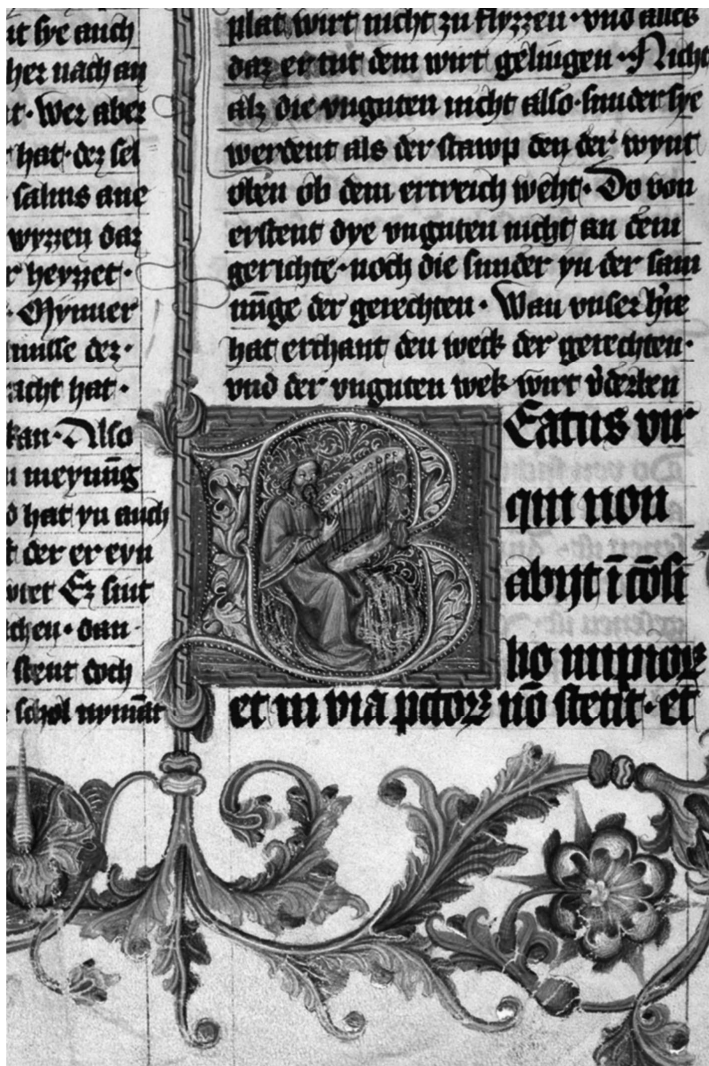 sye auch
her nach an
Wer aber
hat · der sel
salms ane
wyzzen daz
heyzzet ·
Mynner
nusse der ·
acht hat ·
kan · Also
meynūg
hat yn auch
der er eyn
Ez sint
chen · dan
stent doch
schol nymāt
plat wirt nicht zu flyzzen · vnd alles
daz er tut dem wirt gelingen · Nicht
alz die vnguten nicht also · sunder sye
werdent als der stawp den der wynt
oben ob dem ertreich weht · Do von
erstent dye vnguten nicht an dem
gerichte · noch die sunder yn der sam
nūge der gerechten · Wan vnser h̓re
hat erchant den weck der gerechten ·
vnd der vnguten wek wirt v̓derben
Beatus vir
qui non
abijt ī cōsi
lio impioꝝ
et in via pctoꝝ nō stetit · et